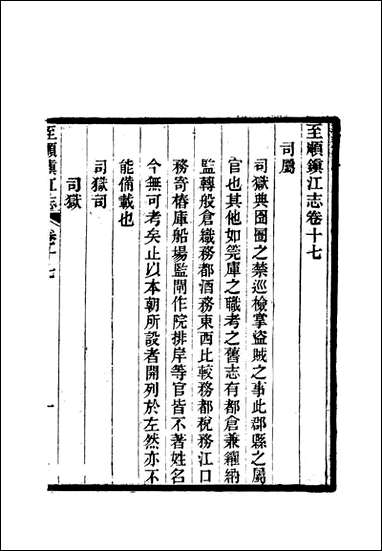 至順鎮江志卷十七
司屬
司獄典囹圄之禁巡檢掌盜賊之事此郡縣之屬
官也其他如筦庫之職考之舊志有都倉兼糴納
監轉般倉織務都酒務東西比較務都稅務江口
務寄樁庫船場監閘作院排岸等官皆不著姓名
今無可考矣止以本朝所設者開列於左然亦不
能備載也
司獄司
司獄
至順鎮江志
卷十七
一